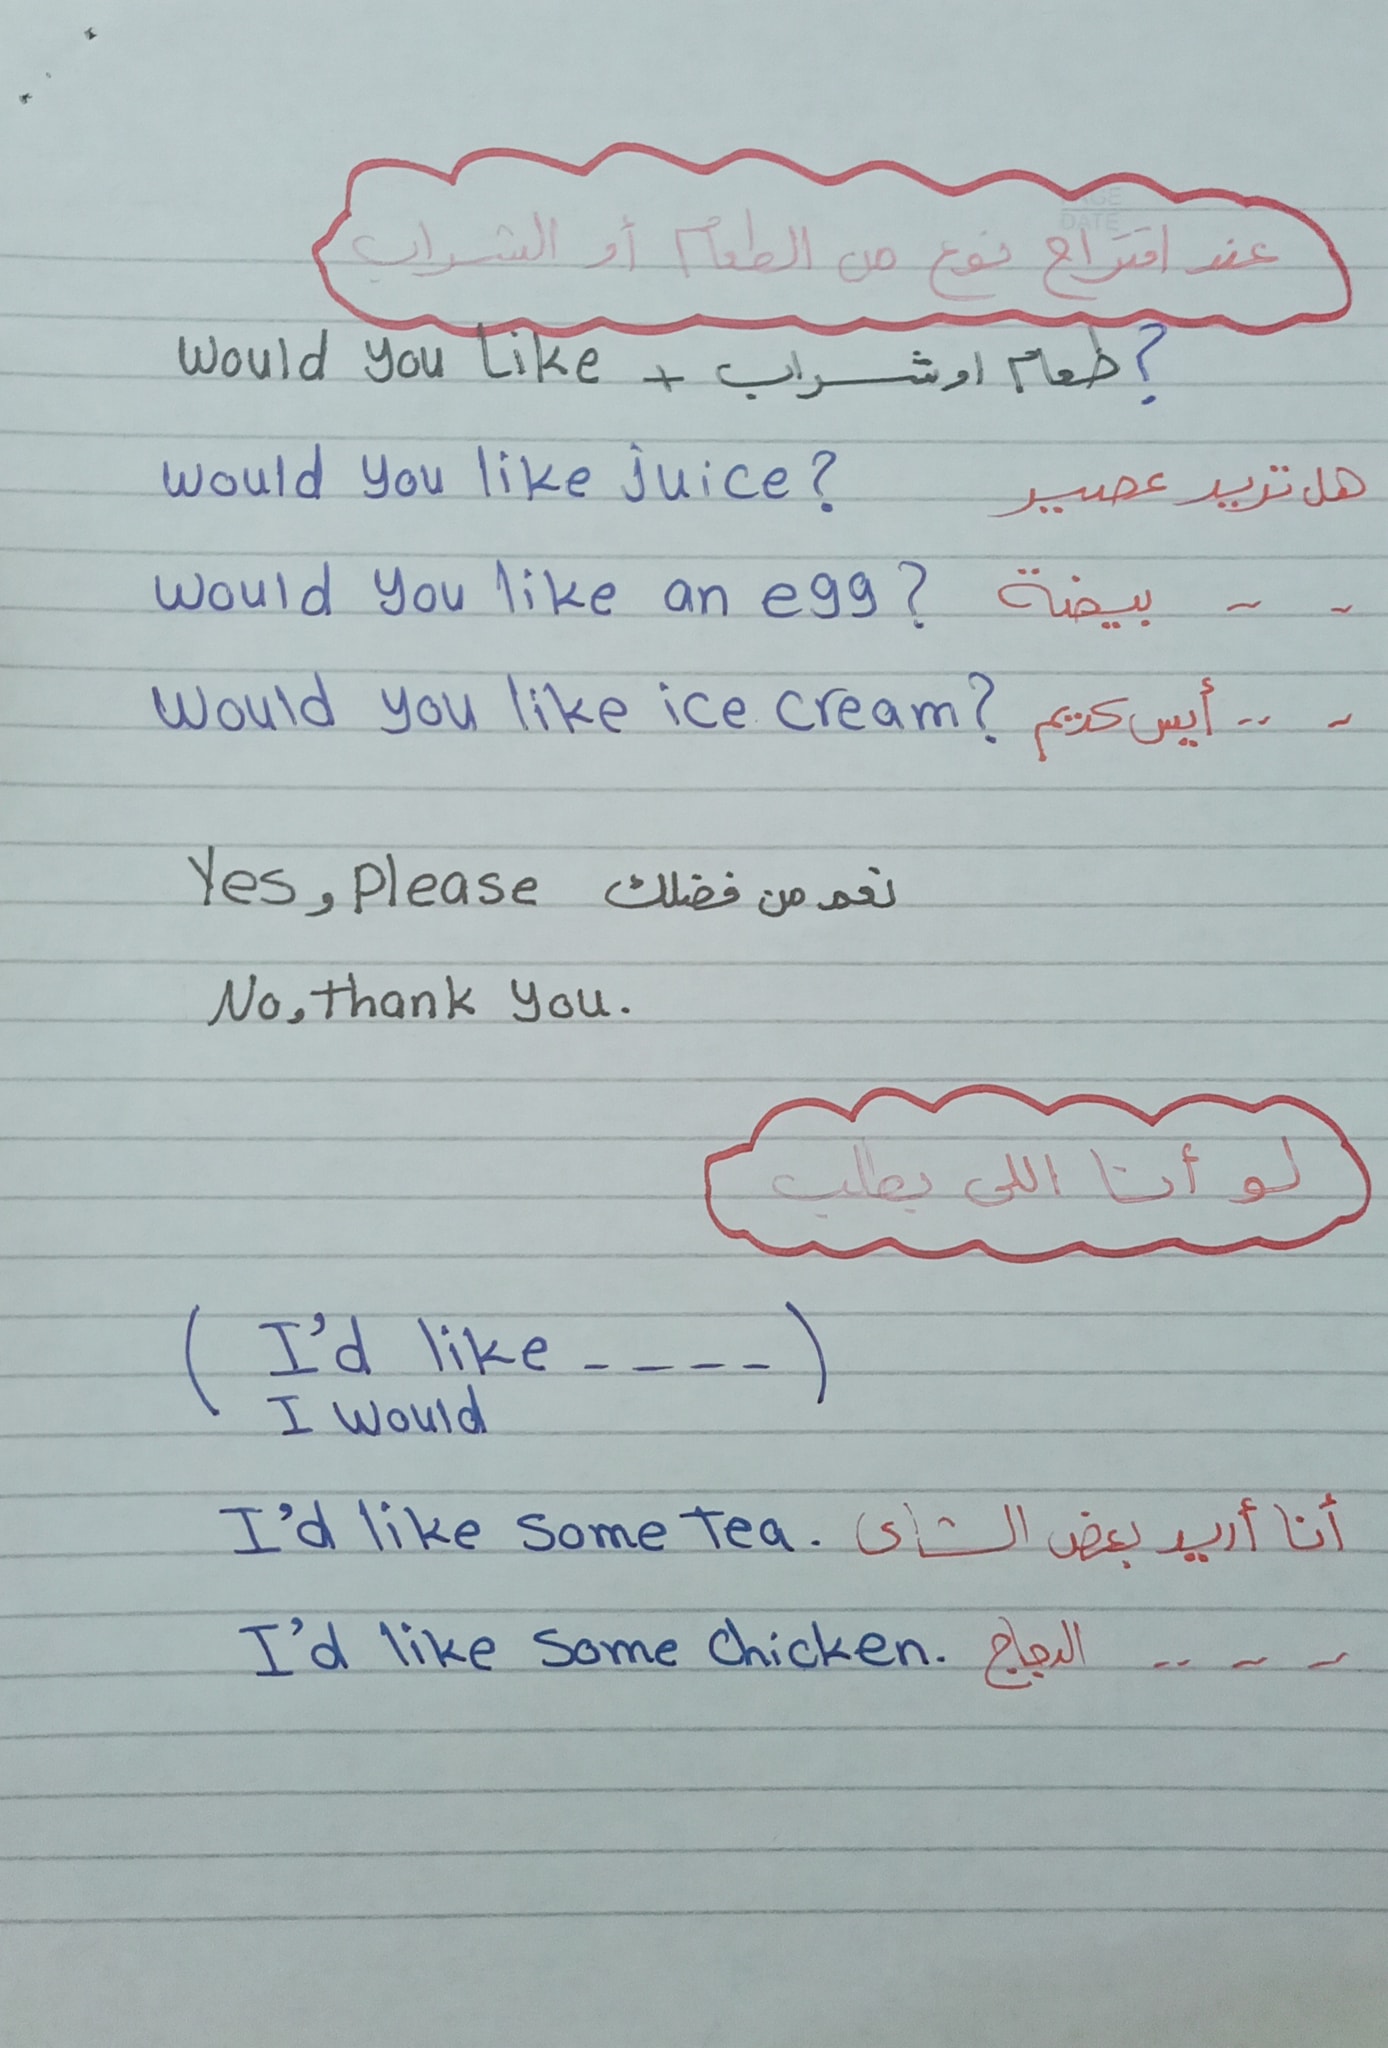 PAGE
DATE
عند اقتراح نوع من الطعام أو الشراب
Would you like + طعام او شراب?
Would you like juice? هل تريد عصير
Would you like an egg? ~ ~ بيضة
Would you like ice cream? ~ -- أيس كريم
Yes, please نعم من فضلك
No, thank you.
لو أنا اللى بطلب
( I'd like ---- )
I would
I'd like some tea. أنا أريد بعض الشاى
I'd like some chicken. ~ ~ -- الدجاج